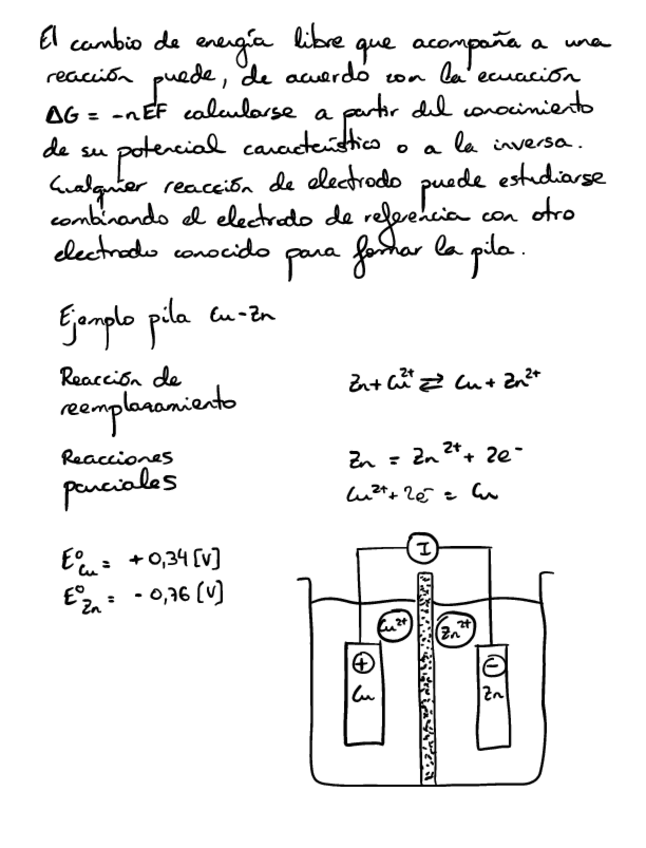 El cambio de energía libre que acompaña a una
reacción puede, de acuerdo con la ecuación
ΔG = -nEF calcularse a partir del conocimiento
de su potencial característico o a la inversa.
Cualquier reacción de electrodo puede estudiarse
combinando el electrodo de referencia con otro
electrodo conocido para formar la pila.
Ejemplo pila Cu-Zn
Reacción de
reemplazamiento
Zn + Cu²⁺ ⇄ Cu + Zn²⁺
Reacciones
parciales
Zn = Zn²⁺ + 2e⁻
Cu²⁺ + 2e⁻ = Cu
E°Cu = +0,34 [V]
E°Zn = -0,76 [V]
I
Cu²⁺ Zn²⁺
+ -
Cu Zn